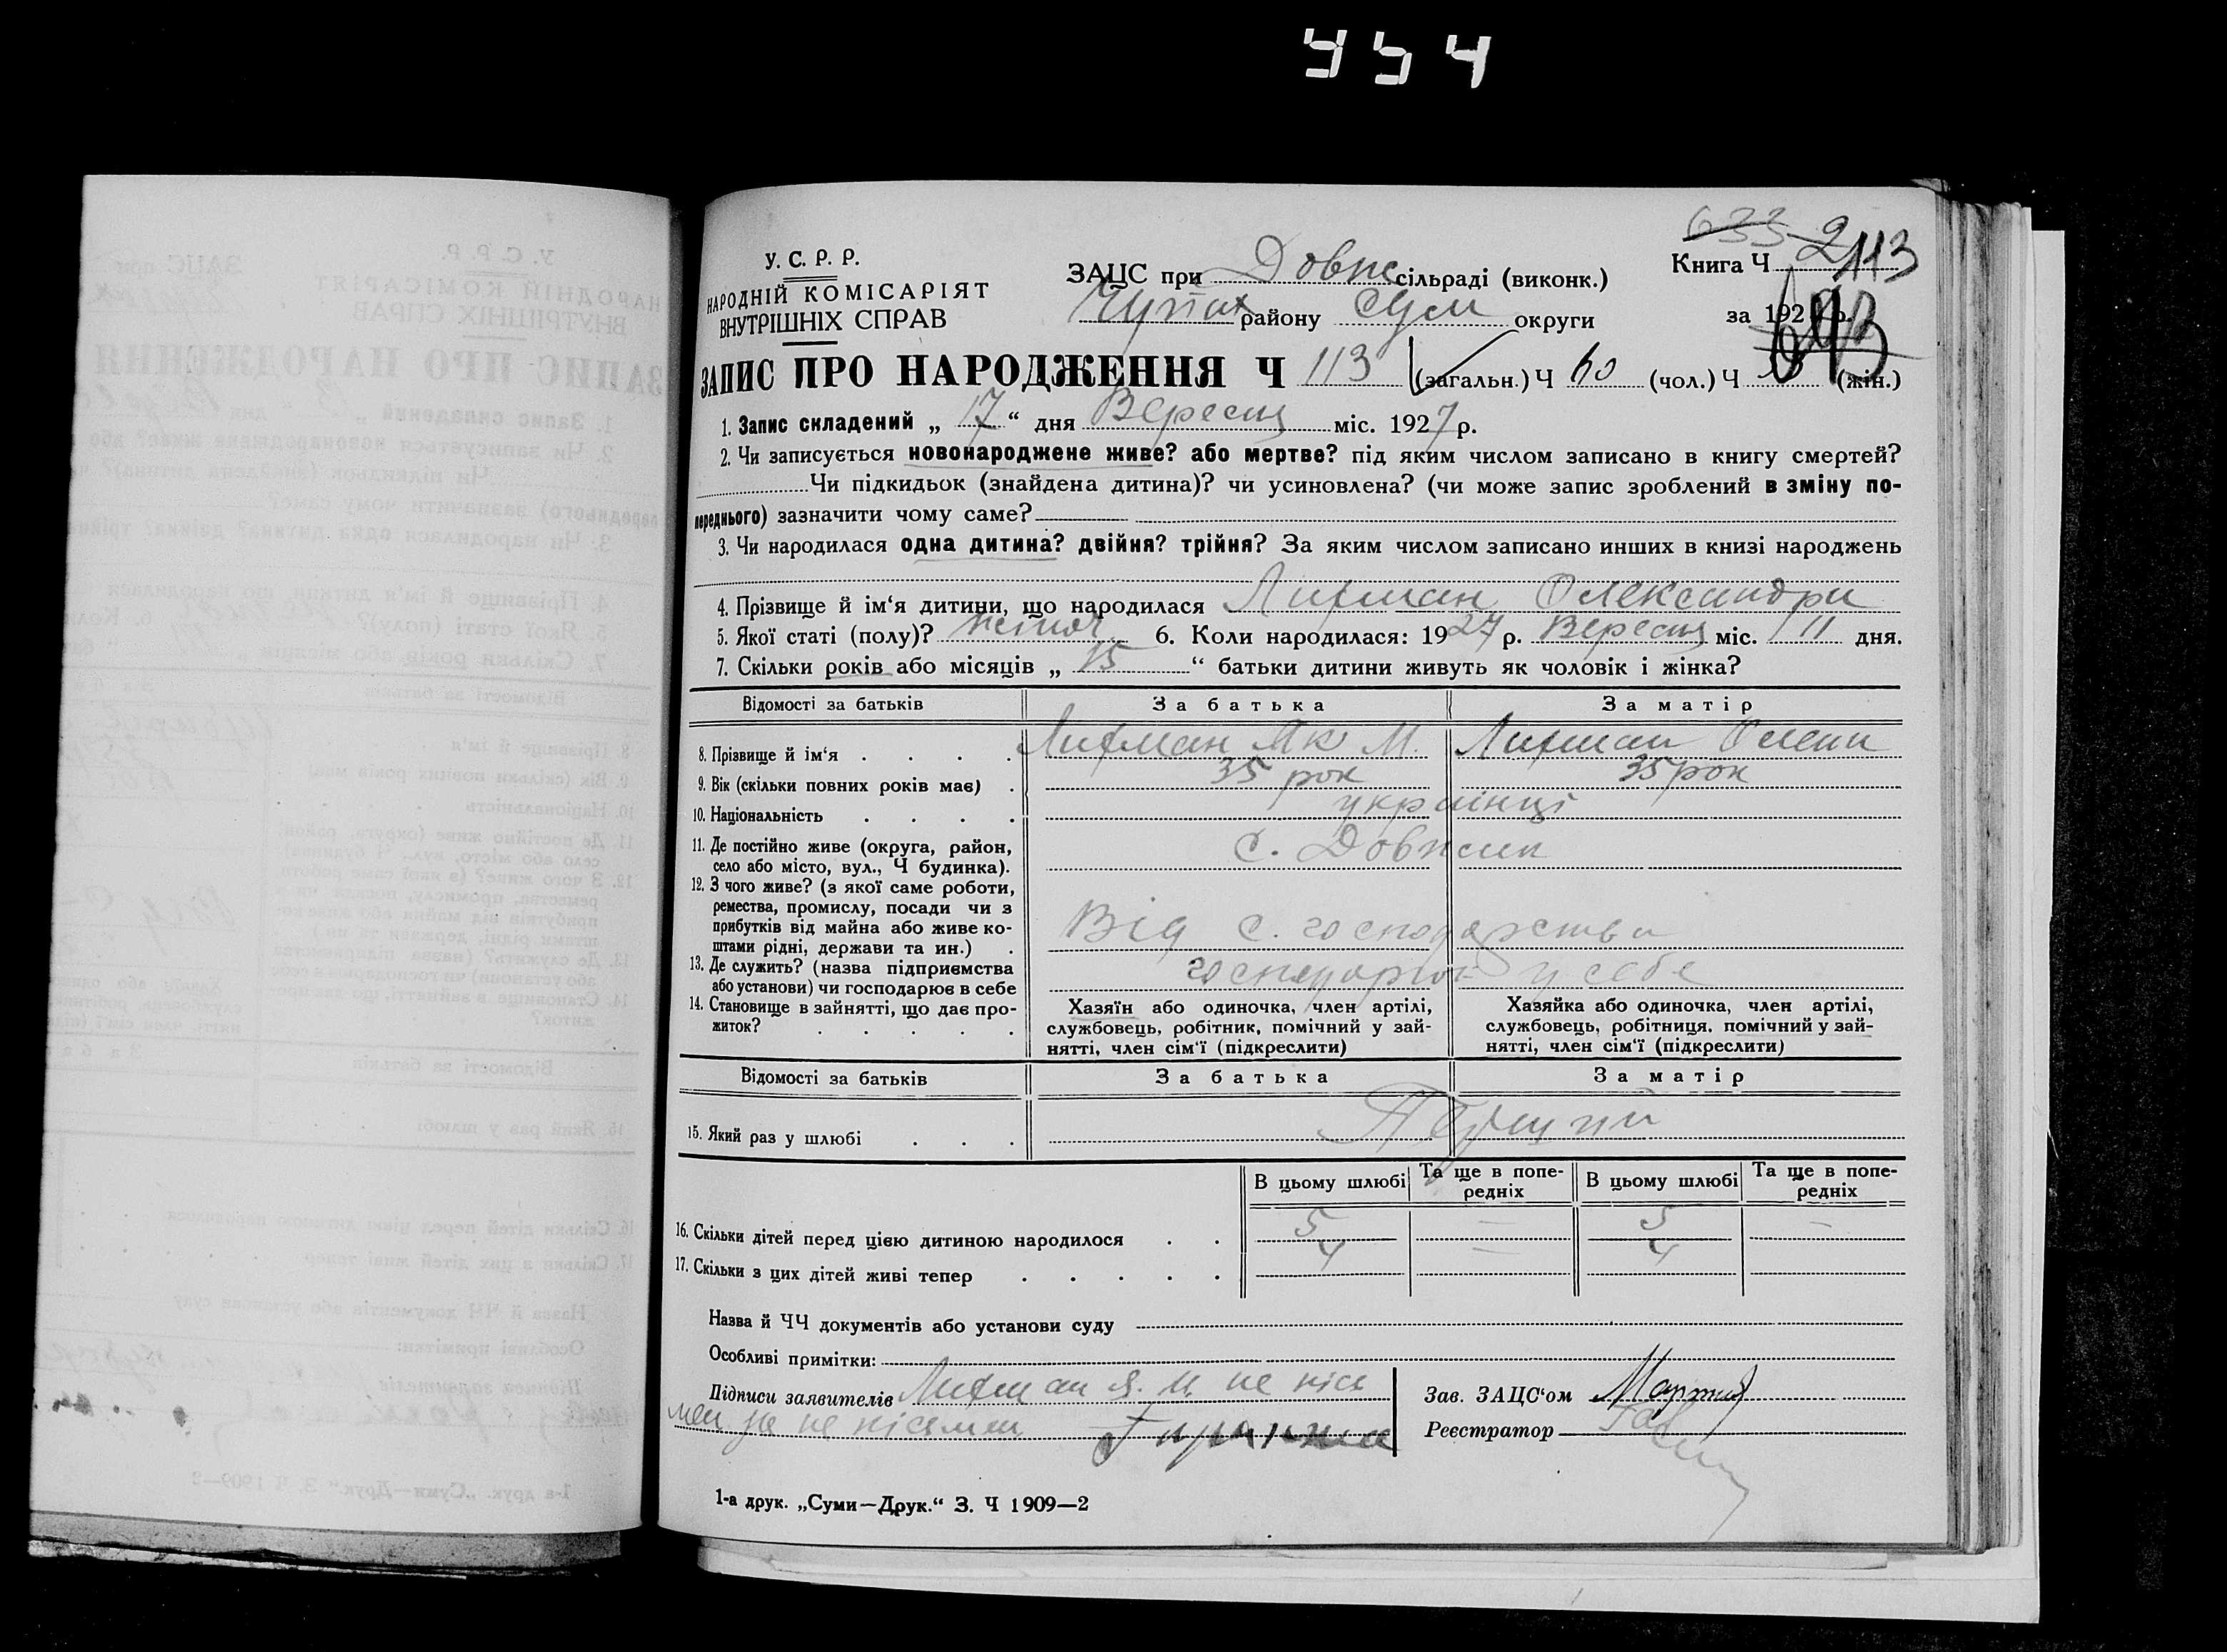 У. С. Р. Р.
НАРОДНІЙ КОМІСАРІЯТ
ВНУТРІШНІХ СПРАВ
ЗАЦС при Довж сільраді (виконк.)
району Сум округи
633
Книга Ч 2 113
за 192 р.
ЗАПИС ПРО НАРОДЖЕННЯ Ч 113 (загальн.) Ч 60 (чол.) Ч (жін.)
1. Запис складений „ 17 “ дня Вересня міс. 1927 р.
2. Чи записується новонароджене живе? або мертве? під яким числом записано в книгу смертей?
Чи підкидьок (знайдена дитина)? чи усиновлена? (чи може запис зроблений в зміну по-
переднього) зазначити чому саме?
3. Чи народилася одна дитина? двійня? трійня? За яким числом записано инших в книзі народжень
4. Прізвище й ім‘я дитини, що народилася Лифман Олександри
5. Якої статі (полу)? 6. Коли народилася: 1927 р. Вересня міс. 11 дня.
7. Скільки років або місяців „ 15 “ батьки дитини живуть як чоловік і жінка?
Відомості за батьків За батька За матір
8. Прізвище й ім‘я . . . . Лифман Як М. Лифман Олени
9. Вік (скільки повних років має) . 35 рок 35 рок
10. Національність . . . . українці
11. Де постійно живе (округа, район,
село або місто, вул., Ч будинка). с. Довжик
12. З чого живе? (з якої саме роботи,
ремества, промислу, посади чи з
прибутків від майна або живе ко-
штами рідні, держави та ин.) . Від с. господарства
13. Де служить? (назва підприємства
або установи) чи господарює в себе у себе
14. Становище в зайнятті, що дає про-
житок? . . . . .
Хазяїн або одиночка, член артілі,
службовець, робітник, помічний у зай-
нятті, член сім‘ї (підкреслити)
Хазяйка або одиночка, член артілі,
службовець, робітниця, помічний у зай-
нятті, член сім‘ї (підкреслити)
Відомості за батьків За батька За матір
15. Який раз у шлюбі . . .
В цьому шлюбі Та ще в попе-
редніх В цьому шлюбі Та ще в попе-
редніх
16. Скільки дітей перед цією дитиною народилося . . 5 — 5 —
17. Скільки з цих дітей живі тепер . . . . . 4 — 4
Назва й ЧЧ документів або установи суду
Особливі примітки:
Підписи заявителів Лифман Я. М. не пісь
мен за не пісьмен
Зав. ЗАЦС‘ом
Реєстратор
1-а друк. „Суми—Друк.“ З. Ч 1909—2